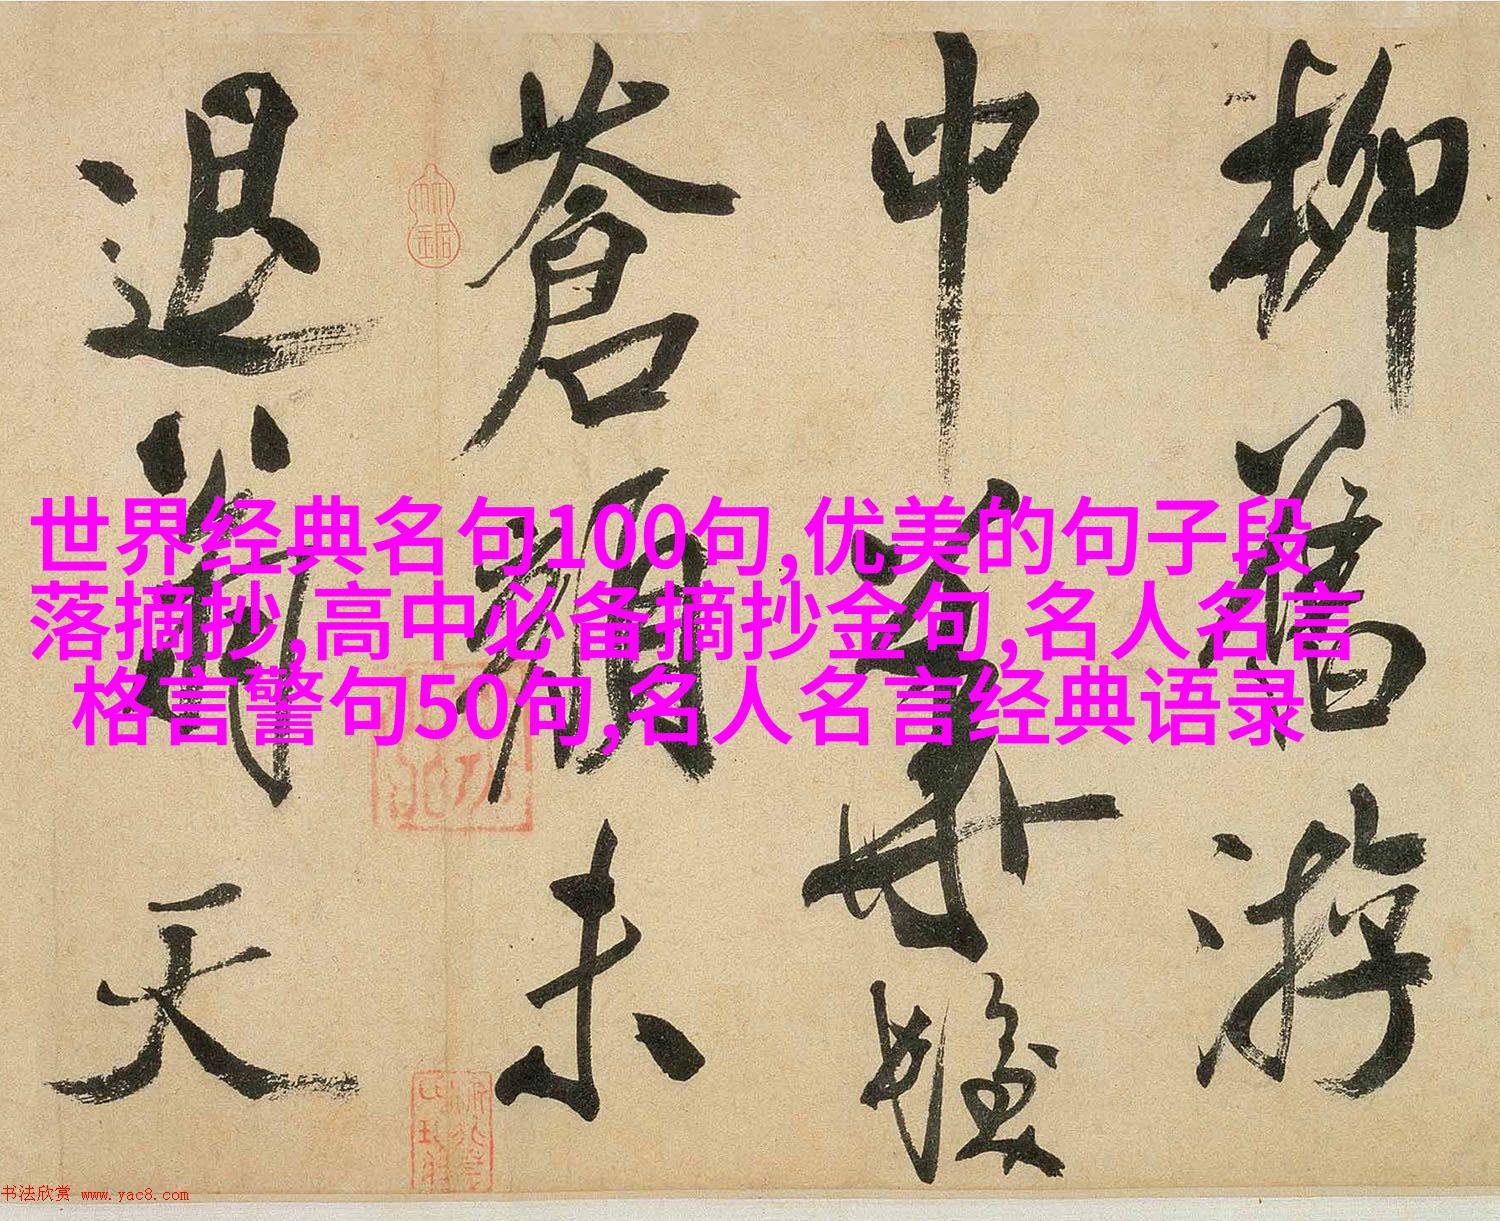 柳舊游
中華髮
蒼顏未
退蘭天
世界经典名句100句,优美的句子段
落摘抄,高中必备摘抄金句,名人名言
格言警句50句,名人名言经典语录
书法欣赏 www.yac8.com